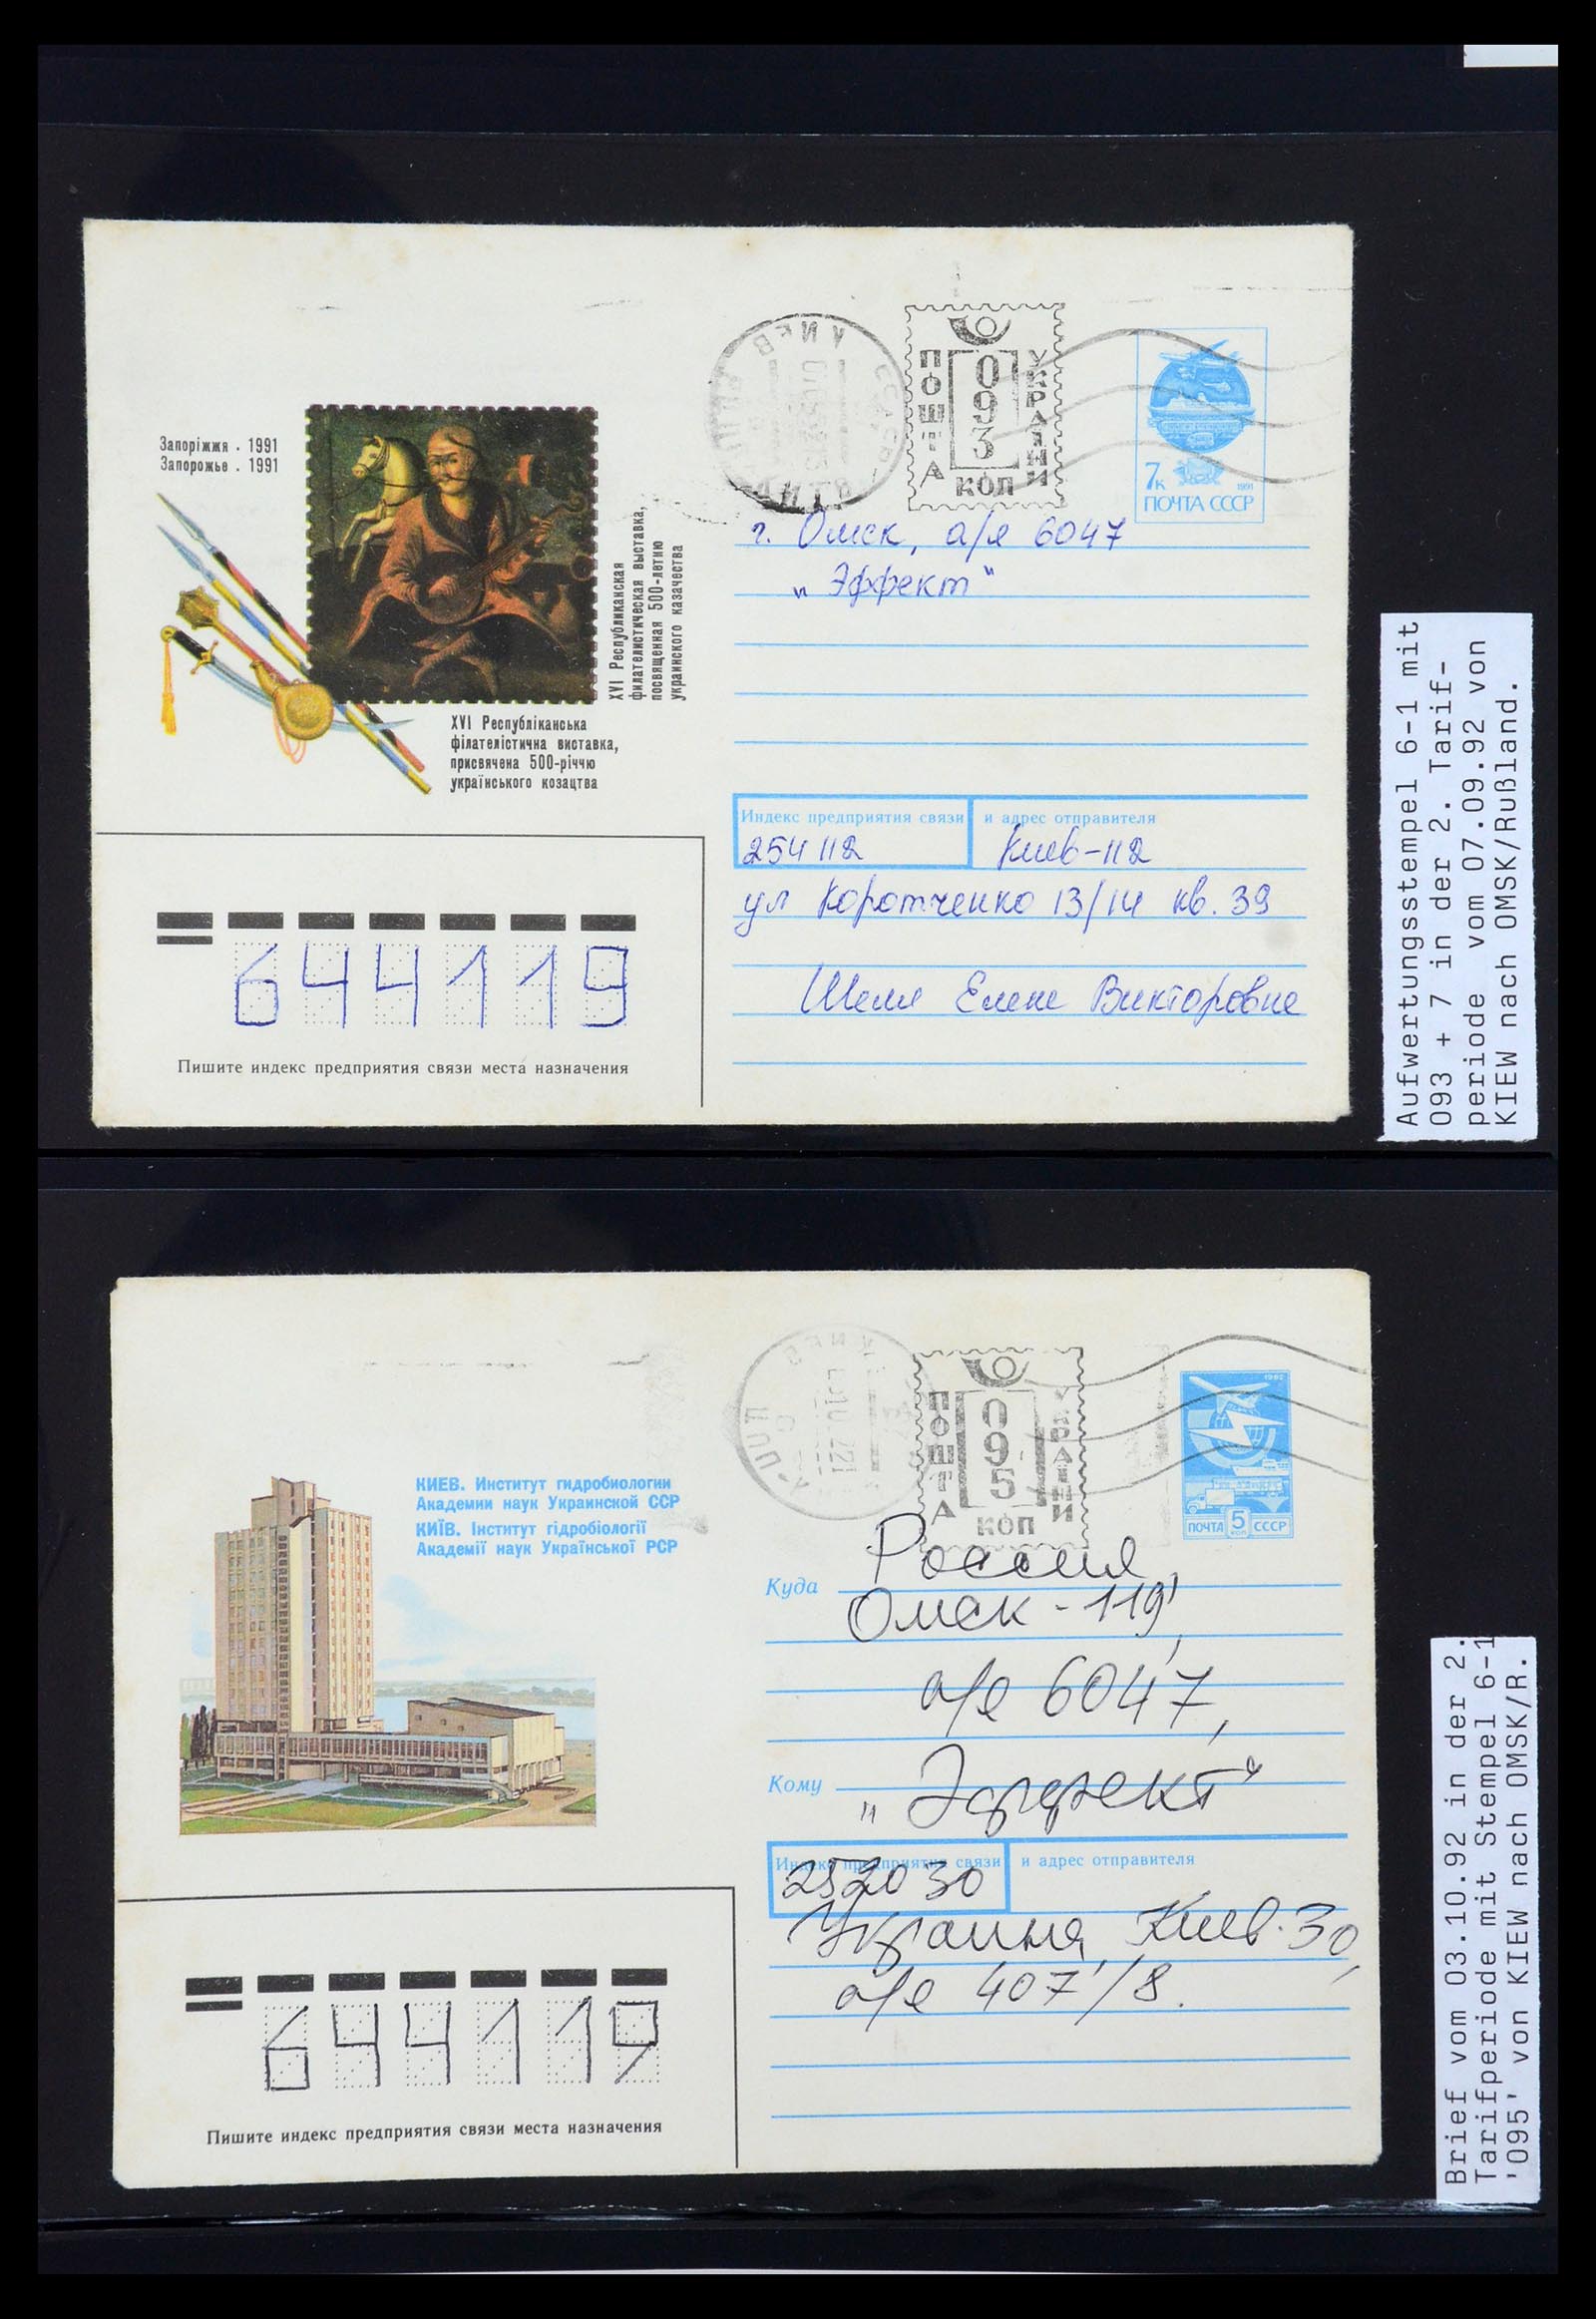 Запоріжжя . 1991
Запорожье . 1991
XVI Республиканская
филателистическая выставка,
посвященная 500-летию
украинского казачества
XVI Республіканська
філателістична виставка,
присвячена 500-річчю
українського козацтва
КИЕВ
ПОШТА
093
КОП
УКРАЇНИ
7к
1991
ПОЧТА СССР
г. Омск, а/я 6047
"Эффект"
Индекс предприятия связи
и адрес отправителя
254112
Киев-112
ул Коротченко 13/14 кв. 39
Елене Викторовне
644119
Пишите индекс предприятия связи места назначения
Aufwertungsstempel 6-1 mit
093 + 7 in der 2. Tarif-
periode vom 07.09.92 von
KIEW nach OMSK/Rußland.
КИЕВ. Институт гидробиологии
Академии наук Украинской ССР
КИЇВ. Інститут гідробіології
Академії наук Української РСР
ПОШТА
095
КОП
УКРАЇНИ
1982
ПОЧТА 5 КОП СССР
Куда
Россия,
Омск-119,
а/я 6047,
Кому
"Эффект"
Индекс предприятия связи
и адрес отправителя
252030
Украина, Киев-30,
а/я 407/8.
644119
Пишите индекс предприятия связи места назначения
Brief vom 03.10.92 in der 2.
Tarifperiode mit Stempel 6-1
'095' von KIEW nach OMSK/R.